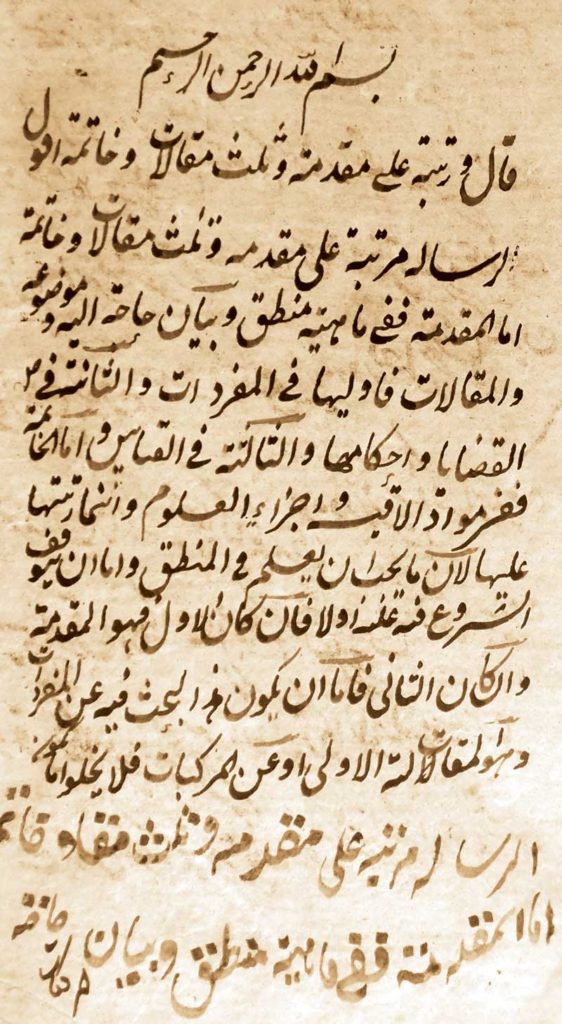 بسم الله الرحمن الرحيم
قال ورتبته على مقدمة وثلث مقالات وخاتمة اقول
الرساله مرتبة على مقدمه وثلث مقالات وخاتمة
اما المقدمة ففى ماهية منطق وبيان حاجة اليه وموضوعه
والمقالات فاوليها فى المفردات والثانية فى
القضايا واحكامها والثالثة فى القياس واما الخاتمة
ففى مواد الاقيسه واجزاء العلوم وانما رتبتها
عليها لان ما يجب ان يعلم فى المنطق واما ان يتوقف
الشروع فيه عليه اولا فان كان الاول فهو المقدمة
وان كان الثانى فاما ان يكون البحث فيه عن المفردات
وهو المقالة الاولى او عن المركبات فلا يخلوا اما
الرساله مرتبه على مقدمه وثلث مقالا وخاتمة
اما المقدمة ففى ماهية منطق وبيان حاجة